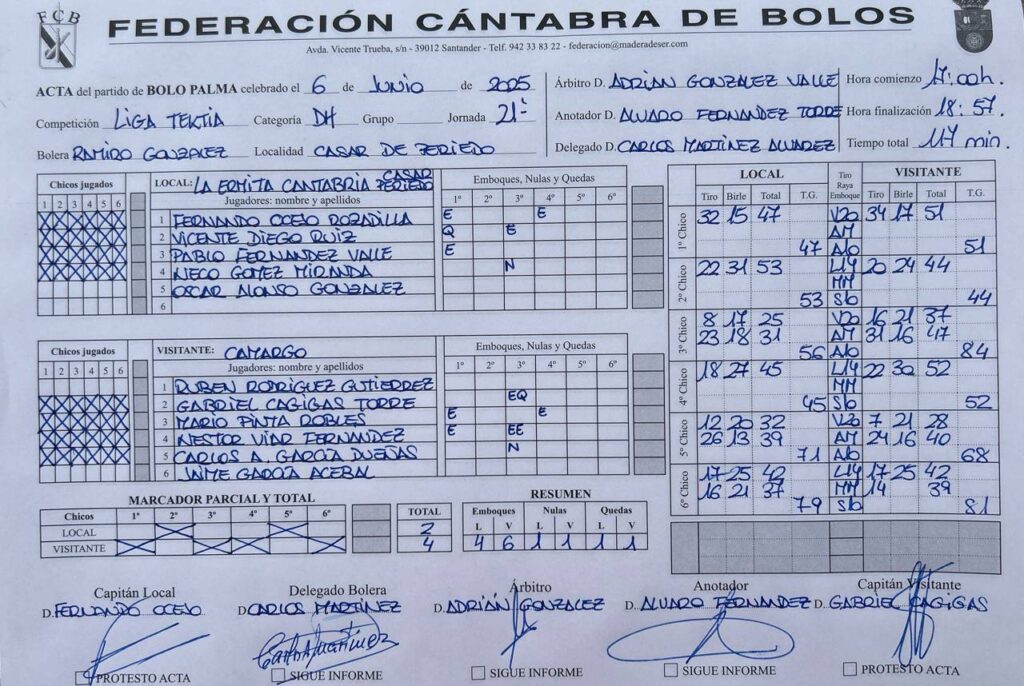 FCB
FEDERACIÓN CÁNTABRA DE BOLOS
Avda. Vicente Trueba, s/n - 39012 Santander - Telf. 942 33 83 22 - federacion@maderadeser.com
ACTA del partido de BOLO PALMA celebrado el 6 de JUNIO de 2025
Competición LIGA TEKTIA Categoría DH Grupo Jornada 21ª
Bolera RAMIRO GONZALEZ Localidad CASAR DE PERIEDO
Árbitro D. ADRIÁN GONZALEZ VALLE
Anotador D. ALVARO FERNANDEZ TORRE
Delegado D. CARLOS MARTÍNEZ ALVAREZ
Hora comienzo 17:00h.
Hora finalización 18:57.
Tiempo total 117 min.
Chicos jugados
1 2 3 4 5 6
LOCAL: LA ERMITA CANTABRIA CASAR PERIEDO
Jugadores: nombre y apellidos
Emboques, Nulas y Quedas
1º 2º 3º 4º 5º 6º
1 FERNANDO OCEJO ROZADILLA E E
2 VICENTE DIEGO RUIZ Q E
3 PABLO FERNANDEZ VALLE E
4 NECO GOMEZ MIRANDA N
5 OSCAR ALONSO GONZALEZ
6
Chicos jugados
1 2 3 4 5 6
VISITANTE: CAMARGO
Jugadores: nombre y apellidos
Emboques, Nulas y Quedas
1º 2º 3º 4º 5º 6º
1 RUBEN RODRÍGUEZ GUTIERREZ
2 GABRIEL CAGIGAS TORRE EQ
3 MARIO PINTA ROBLES E E
4 NESTOR VIAR FERNANDEZ E EE
5 CARLOS A. GARCÍA DUEÑAS N
6 JAIME GARCÍA ACEBAL
MARCADOR PARCIAL Y TOTAL
Chicos 1º 2º 3º 4º 5º 6º TOTAL
LOCAL 2
VISITANTE 4
RESUMEN
Emboques Nulas Quedas
L V L V L V
4 6 1 1 1 1
LOCAL Tiro Raya Emboque VISITANTE
Tiro Birle Total T.G. Tiro Birle Total T.G.
1º Chico
32 15 47 V20 34 17 51
AM
47 A10 51
2º Chico
22 31 53 L14 20 24 44
MM
53 S10 44
3º Chico
8 17 25 V20 16 21 37
23 18 31 AM 31 16 47
56 A10 84
4º Chico
18 27 45 L14 22 30 52
MM
45 S10 52
5º Chico
12 20 32 V20 7 21 28
26 13 39 AM 24 16 40
71 A10 68
6º Chico
17 25 42 L14 17 25 42
16 21 37 MM 14 39
79 S10 81
Capitán Local
D. FERNANDO OCEJO
PROTESTO ACTA
Delegado Bolera
D. CARLOS MARTÍNEZ
SIGUE INFORME
Árbitro
D. ADRIÁN GONZALEZ
SIGUE INFORME
Anotador
D. ALVARO FERNANDEZ
SIGUE INFORME
Capitán Visitante
D. GABRIEL CAGIGAS
PROTESTO ACTA